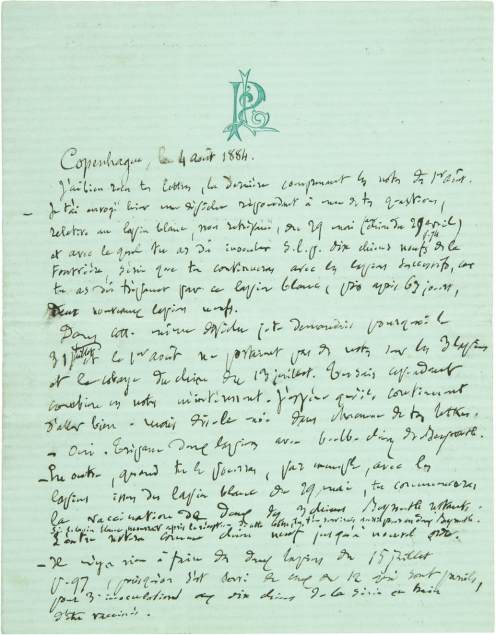 PL
Copenhague, le 4 août 1884.
J'ai bien reçu tes lettres, la dernière comprenant les notes du 1er août.
Je t'ai envoyé hier une dépêche répondant à une de tes questions,
relative au lapin blanc, non trépané, du 29 mai (chien du 29 avril)
et avec lequel tu as dû inoculer s.l.p. dix chiens neufs de la
fourrière, série que tu continueras avec les lapins successifs, car
tu as dû trépaner par ce lapin blanc, pris après 63 jours,
deux nouveaux lapins neufs.
Dans cette même dépêche je te demandais pourquoi le
31 juillet et le 1er août ne portaient pas de notes sur les 3 lapins
et le cobaye du chien du 13 juillet. Tu dois cependant
les notes J'espère qu'ils continuent
d'aller bien - mais dis-le moi dans chacune de tes lettres.
- Oui. Trépane deux lapins avec bulbe chien de Beyrouth.
- En outre, quand tu le pourras, par exemple, avec les
lapins issus du lapin blanc du 29 mai, tu commenceras
la vaccination de deux des 3 chiens Beyrouth restants.
L'autre restera comme chien neuf jusqu'à nouvel ordre.
- Je n'ai rien à faire des deux lapins du 15 juillet
p. 97, puisqu'on s'est servi de ceux du 12 qui sont pareils,
pour 3e inoculation aux dix chiens de la série en train
d'être vaccinés.